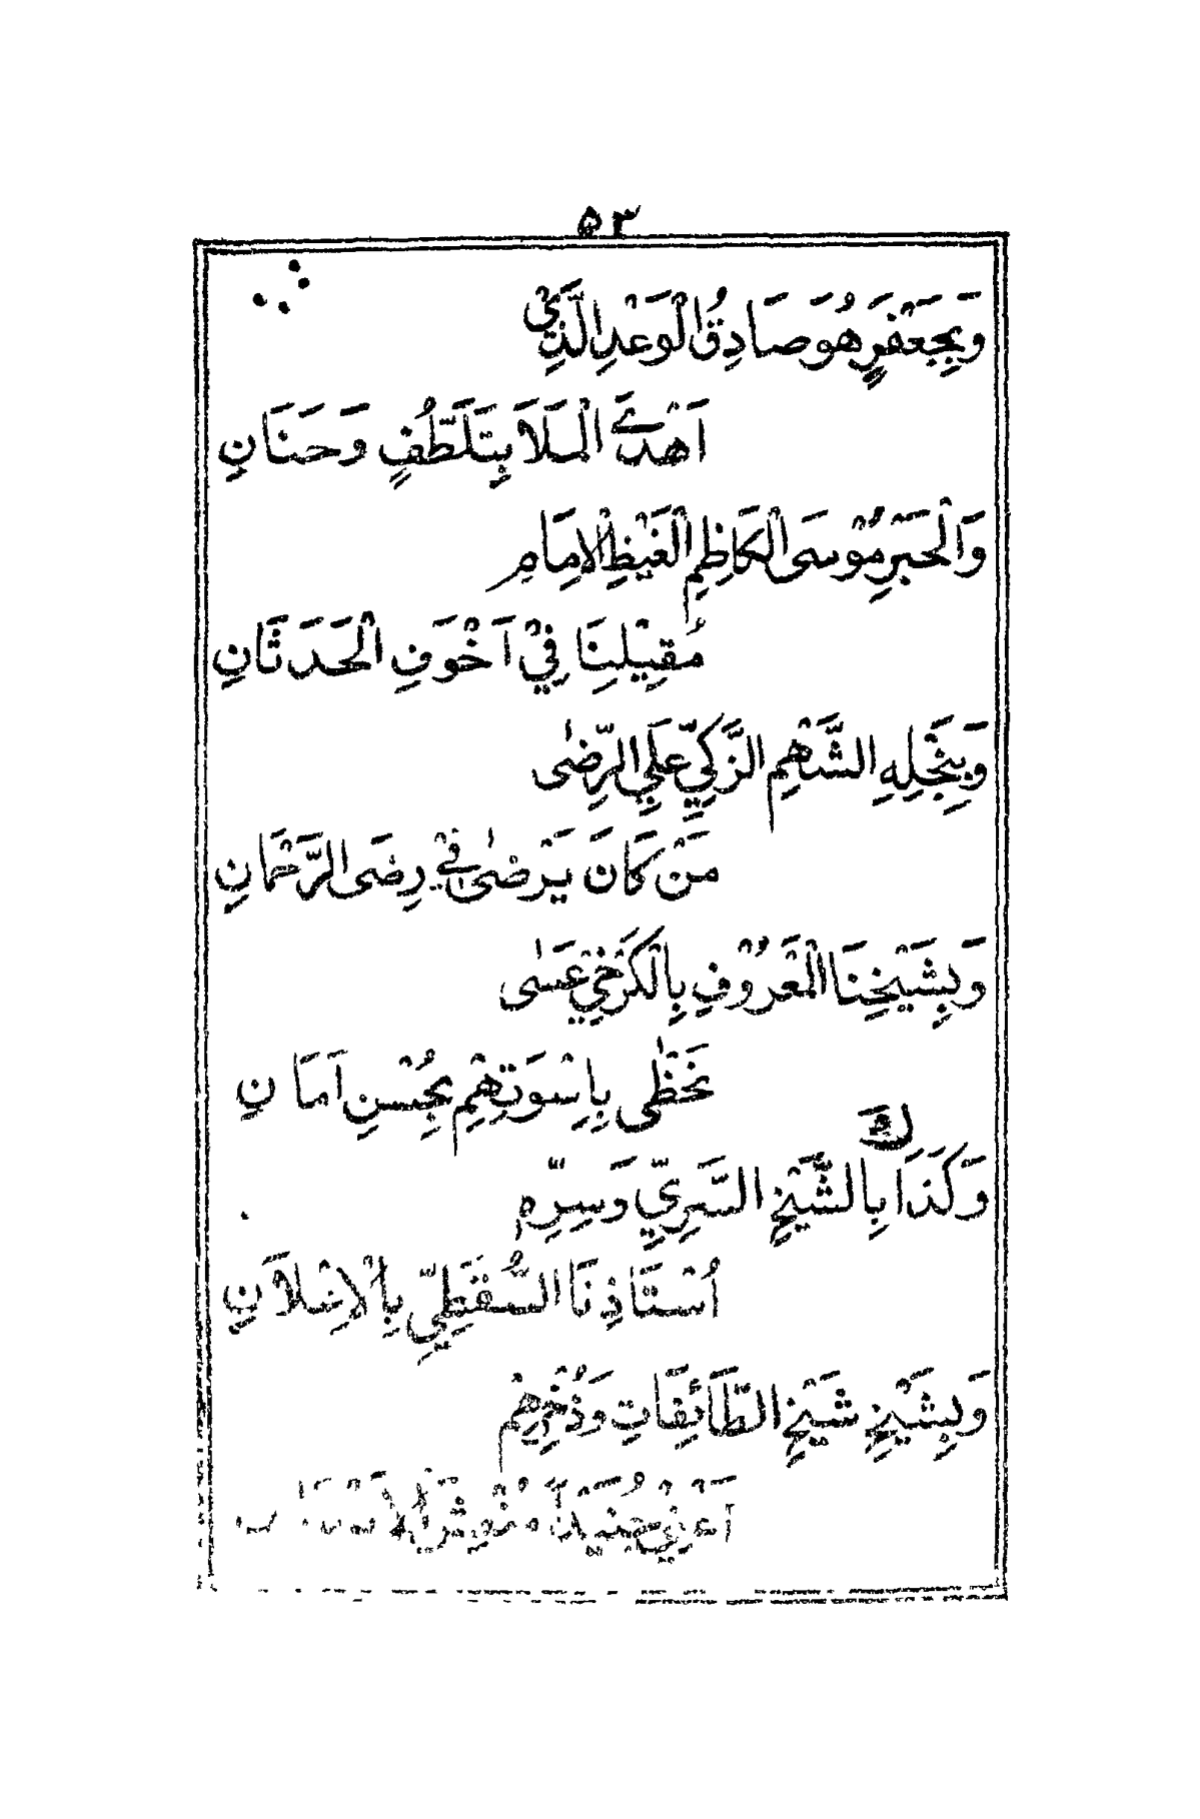 ٥٣
وَبِجَعْفَرٍ هُوَ صَادِقُ الْوَعْدِ الَّذِيْ
اَهْدَےَ الْمَلَاَ بِتَلَطُّفٍ وَحَنَانِ
وَالْحَبْرِ مُوْسَى الْكَاظِمِ الْغَيْظِ الْاِمَامِ
مُقِيْلِنَا فِيْ اَخْوَفِ الْحَدَثَانِ
وَبِنَجْلِهِ الشَّهْمِ الزَّكِيِّ عَلِيِ الرِّضٰى
مَنْ كَانَ يَرْضٰى فِيْ رِضَى الرَّحْمَانِ
وَبِشَيْخِنَا الْمَعْرُوْفِ بِالْكَرْخِيْ عَسٰى
نَحْظٰى بِاِسْوَتِهِمْ بِحُسْنِ اَمَانِ
وَكَذَا بِالشَّيْخِ السَّرِيِّ وَسِرِّهِ
اُسْتَاذِنَا السُّقَطِيِّ بِالْاِعْلَانِ
وَبِشَيْخِ شَيْخِ الطَّائِفَاتِ وَذُخْرِهِمْ
اَعْنِيْ جُنَيْدًا